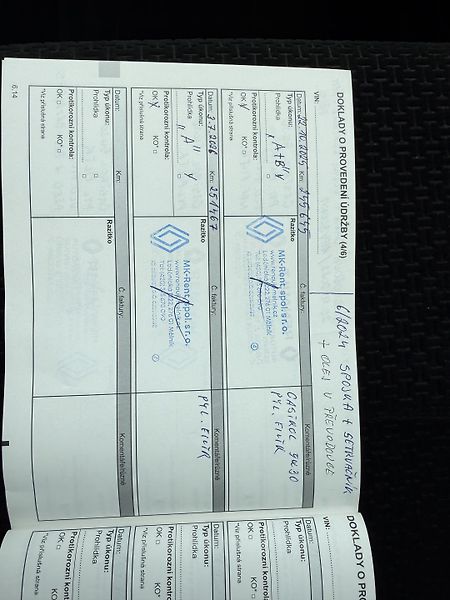 DOKLADY O PROVEDENÍ ÚDRŽBY (4/6)
6/2024 SPOJKA + SETRVAČNÍK
+ OLEJ V PŘEVODOVCE
VIN:
Datum: 22.10.2024 Km: 245 645
Razítko
Č. faktury:
Komentáře/různé
Typ úkonu:
Prohlídka
"A+B"
Protikorozní kontrola:
OK KO*
*Viz příslušná strana
MK-Rent, spol. s r.o.
CASTROL 5W30
PYL. FILTR
Datum: Km: 251467
Razítko
Č. faktury:
Komentáře/různé
Typ úkonu:
Prohlídka
"A"
Protikorozní kontrola:
OK KO*
*Viz příslušná strana
MK-Rent, spol. s r.o.
PYL. FILTR
Datum: Km:
Razítko
Č. faktury:
Komentáře/různé
Typ úkonu:
Prohlídka
Protikorozní kontrola:
OK KO*
*Viz příslušná strana
6.14
DOKLADY O PRO
VIN:
Datum:
Typ úkonu:
Prohlídka
Protikorozní kontrol
OK KO*
*Viz příslušná strana
Datum:
Typ úkonu:
Prohlídka
Protikorozní kontro
OK KO*
*Viz příslušná strana
Datum:
Typ úkonu:
Prohlídka
Protikorozní kontrol
OK KO*
*Viz příslušná strana